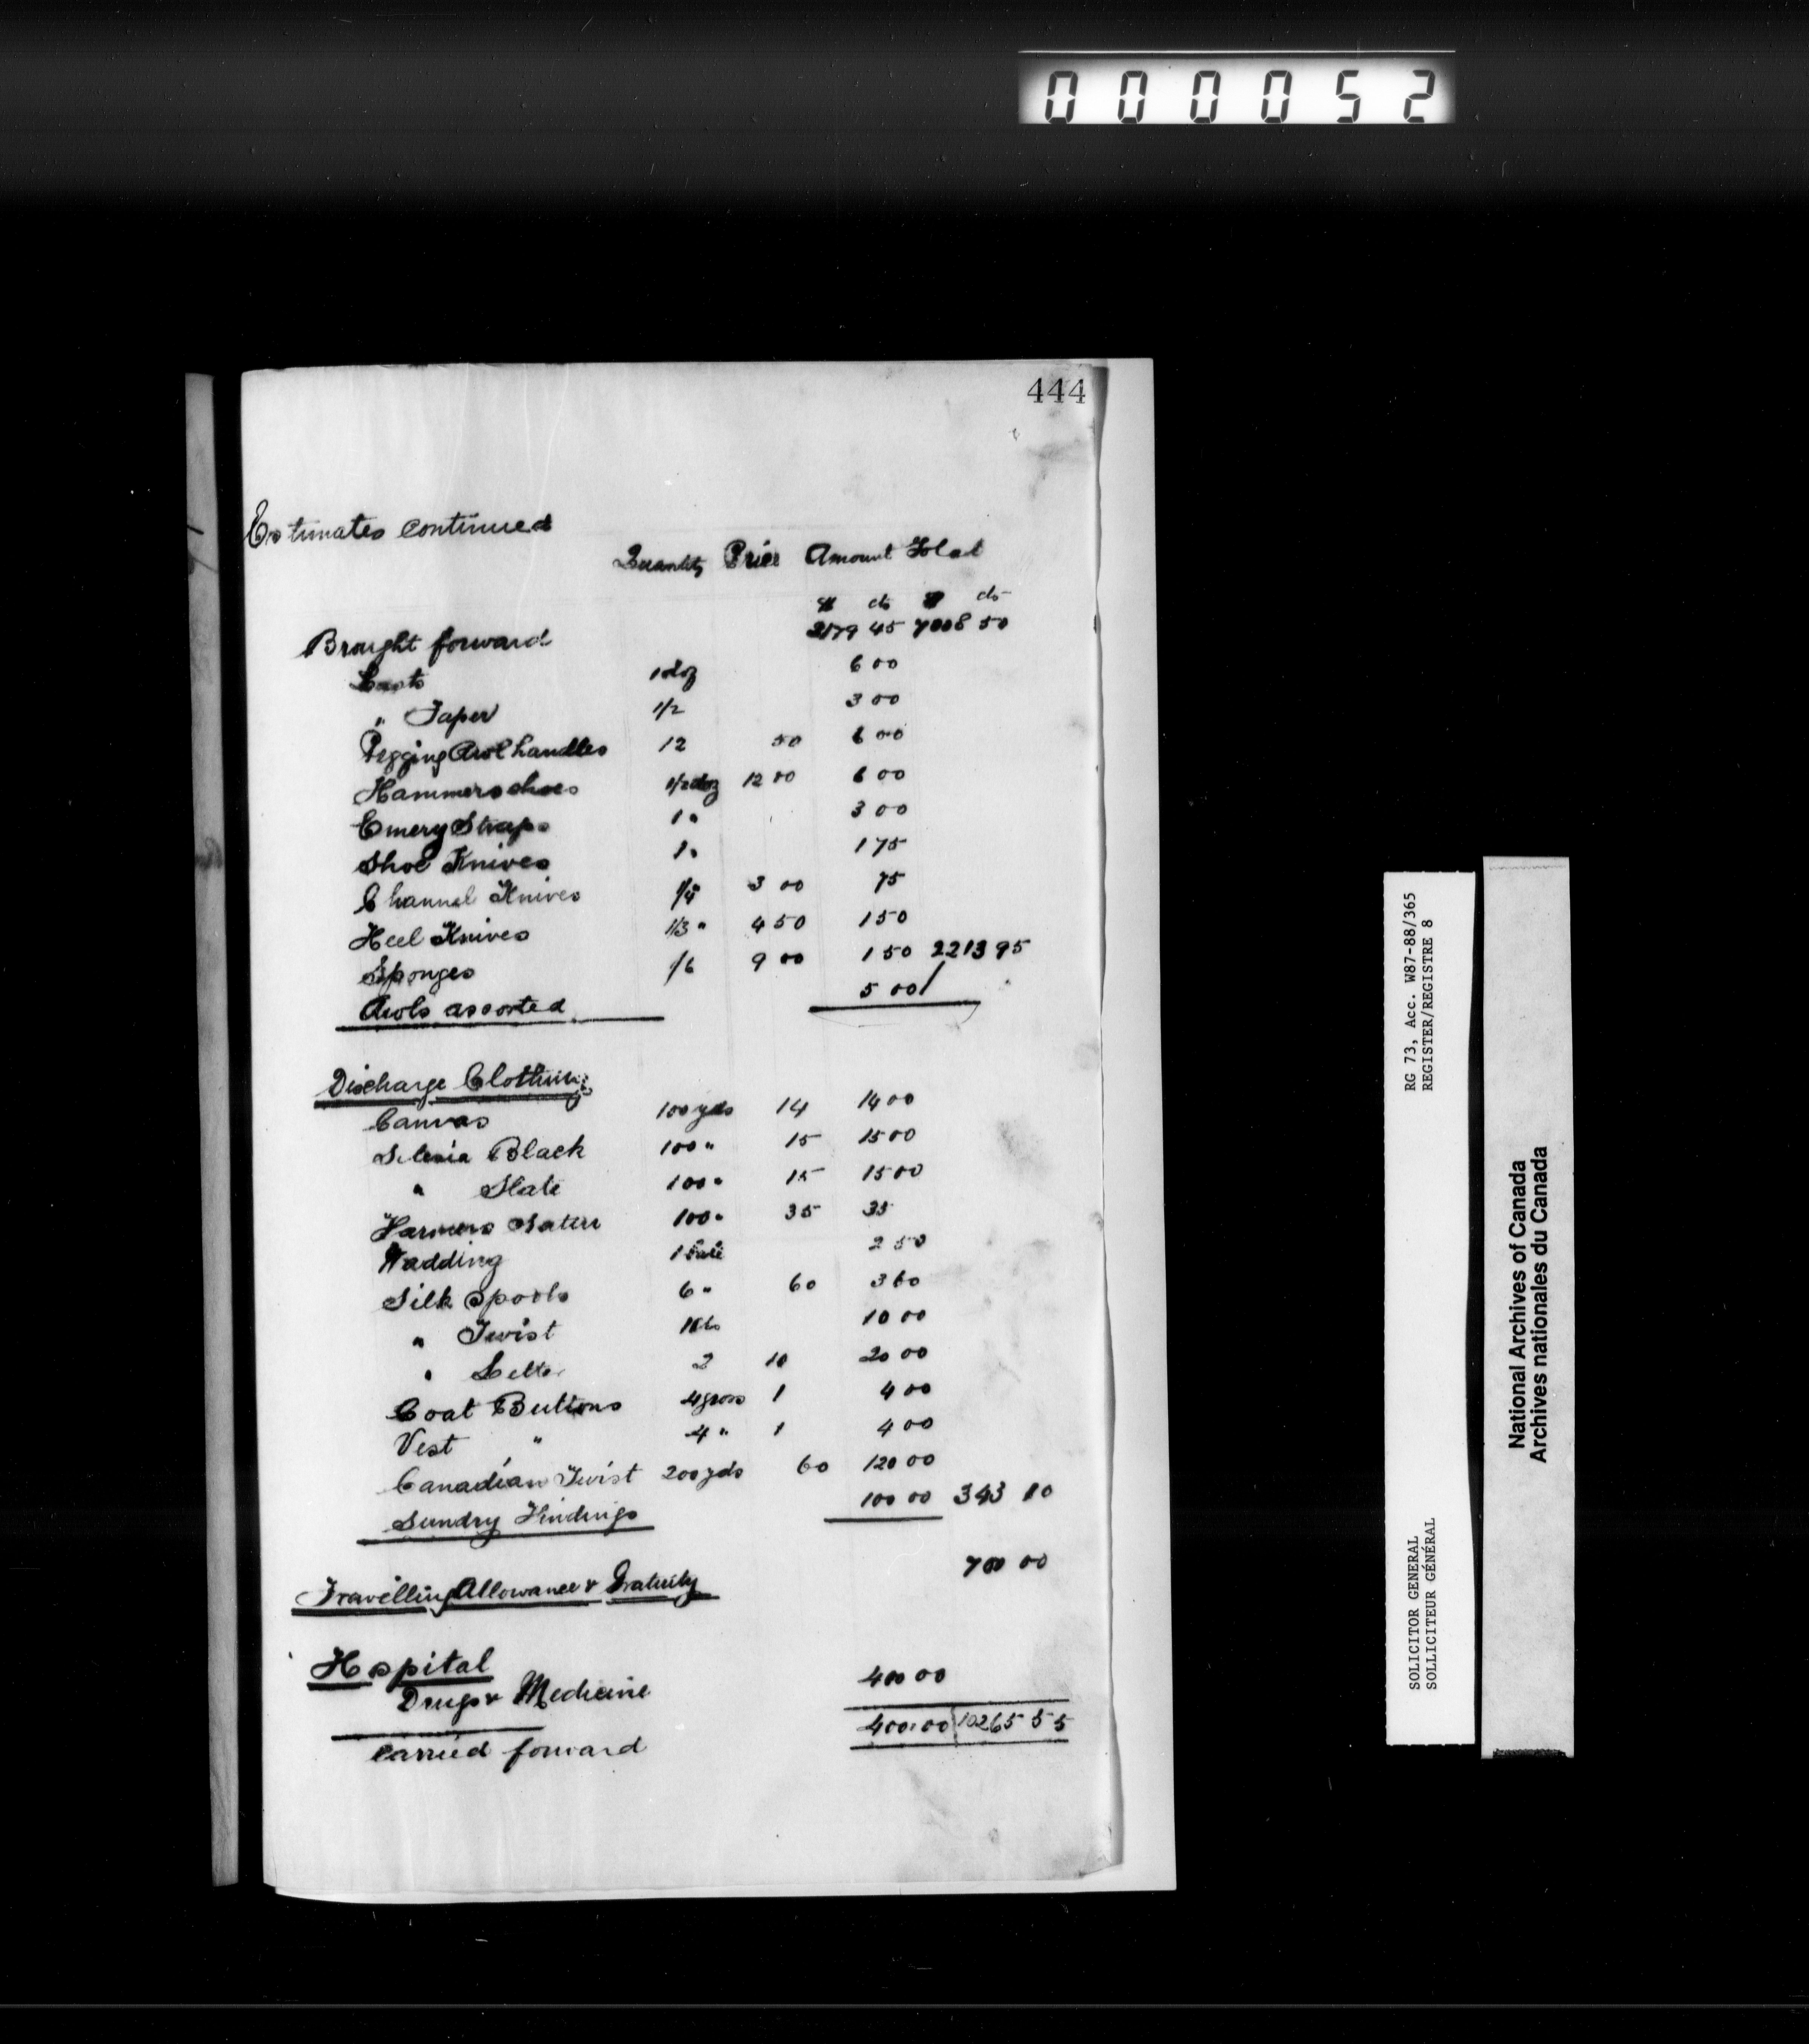 000052
444
Estimates continued
Quantity Price Amount Total
$ cts $ cts
Brought forward 2179 45 7008 50
1 doz 6 00
" Taper 1/2 3 00
Pegging Awl handles 12 50 6 00
Hammers shoes 1/2 doz 12 00 6 00
Emery Straps 1 " 3 00
Shoe Knives 1 " 1 75
Channel Knives 1/4 " 3 00 75
Heel Knives 1/3 " 4 50 1 50
Sponges 1/6 9 00 1 50 2213 95
Awls assorted 5 00
Discharge Clothing
Canvas 100 yds 14 14 00
Silesia Black 100 " 15 15 00
" Slate 100 " 15 15 00
Farmers Satin 100 " 35 35
Wadding 1 bale 2 50
Silk Spools 6 " 60 3 60
" Twist 10 00
" 2 10 20 00
Coat Buttons 4 gross 1 4 00
Vest " 4 " 1 4 00
Canadian Twist 200 yds 60 120 00
Sundry Findings 100 00 343 10
Travelling Allowance & Gratuity 700 00
Hospital
Drugs & Medicine 400 00
Carried forward 400.00 10265 55
RG 73, Acc. W87-88/365
REGISTER/REGISTRE 8
SOLICITOR GENERAL
SOLLICITEUR GÉNÉRAL
National Archives of Canada
Archives nationales du Canada